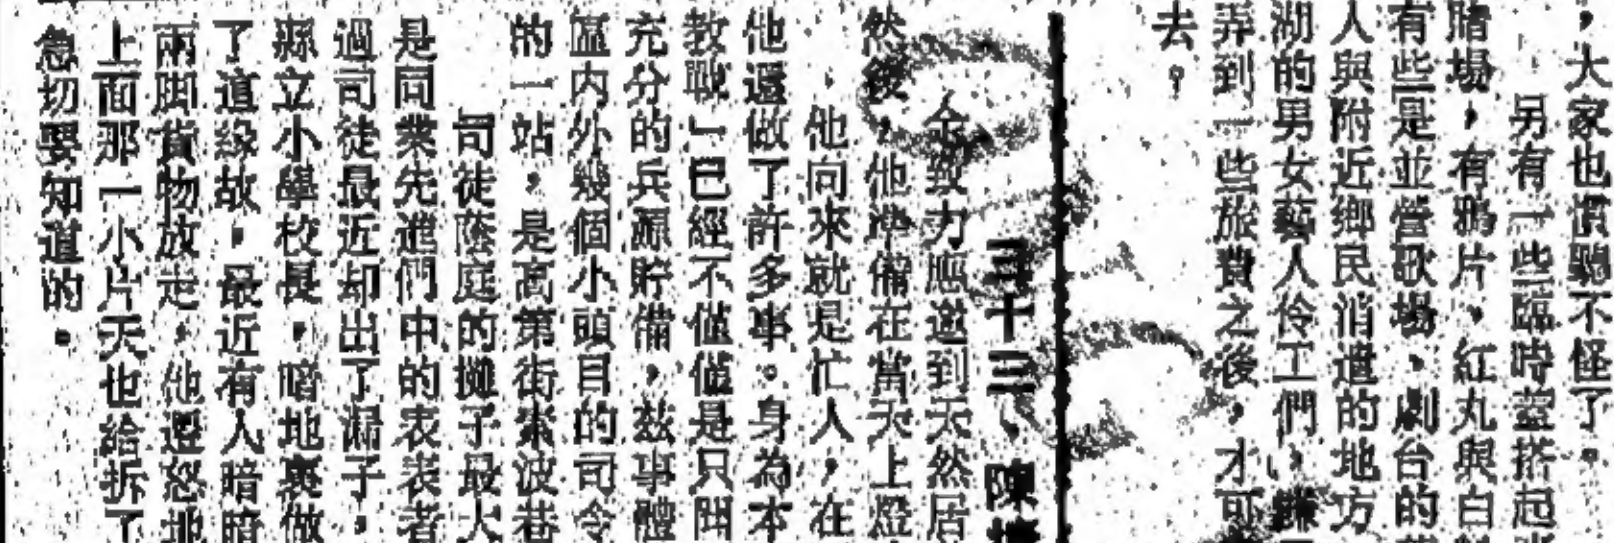 ，大家也慣賜不怪了。
另有一些臨時蓋搭起
賭場，有鴉片、紅丸與白
有些是並營歌場、劇台的
人與附近鄉民消遣的地方
湖的男女藝人伶工們，賺
弄到一些旅費之後，才可
去。
三十三、陳
余致力應邀到天然居
然後，他準備在當天上燈
他向來就是忙人，在
他還做了許多事。身為本
教戰」已經不僅僅是只開
充分的兵源貯備，茲事體
區內外幾個小頭目的司令
的一站，是高第街素波巷
司徒蔭庭的攤子最大
是同業先進們中的表表者
過司徒最近却出了漏子，
縣立小學校長，暗地裏做
了道緣故，最近有人暗暗
兩脚貨物放走，他遷怒地
上面那一小片天也給拆了
急切要知道的。